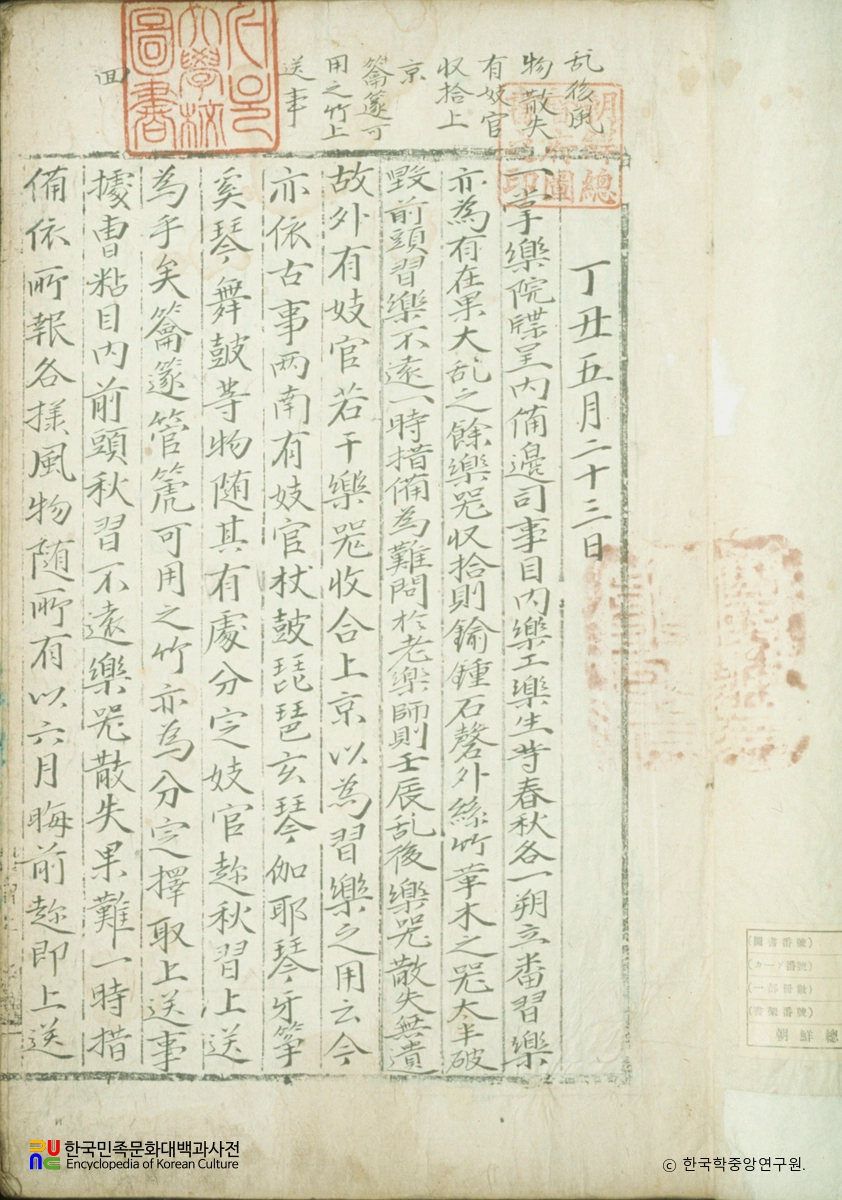 乱後風
物散失
有妓官
収拾上
京
籥篴可
用之竹上
送事
丁丑五月二十三日
一掌樂院牒呈内備邊司事目内樂工樂生等春秋各一朔立番習樂
亦為有在果大乱之餘樂器収拾則鍮鍾石磬外絲竹革木之器太半破
毀前頭習樂不遠一時措備為難問於老樂師則壬辰乱後樂器散失無遺
故外有妓官若干樂器收合上京以為習樂之用云今
亦依古事两南有妓官杖鼓琵琶玄琴伽耶琴牙箏
奚琴舞鼓等物随其有處分定妓官趂秋習上送
為乎矣籥篴管篪可用之竹亦為分定擇取上送事
據曺粘目内前頭秋習不遠樂器散失果難一時措
備依所報各様風物随所有以六月晦前趂即上送
圖書
文學校
總
圖
印
한국민족문화대백과사전
Encyclopedia of Korean Culture
ⓒ 한국학중앙연구원.